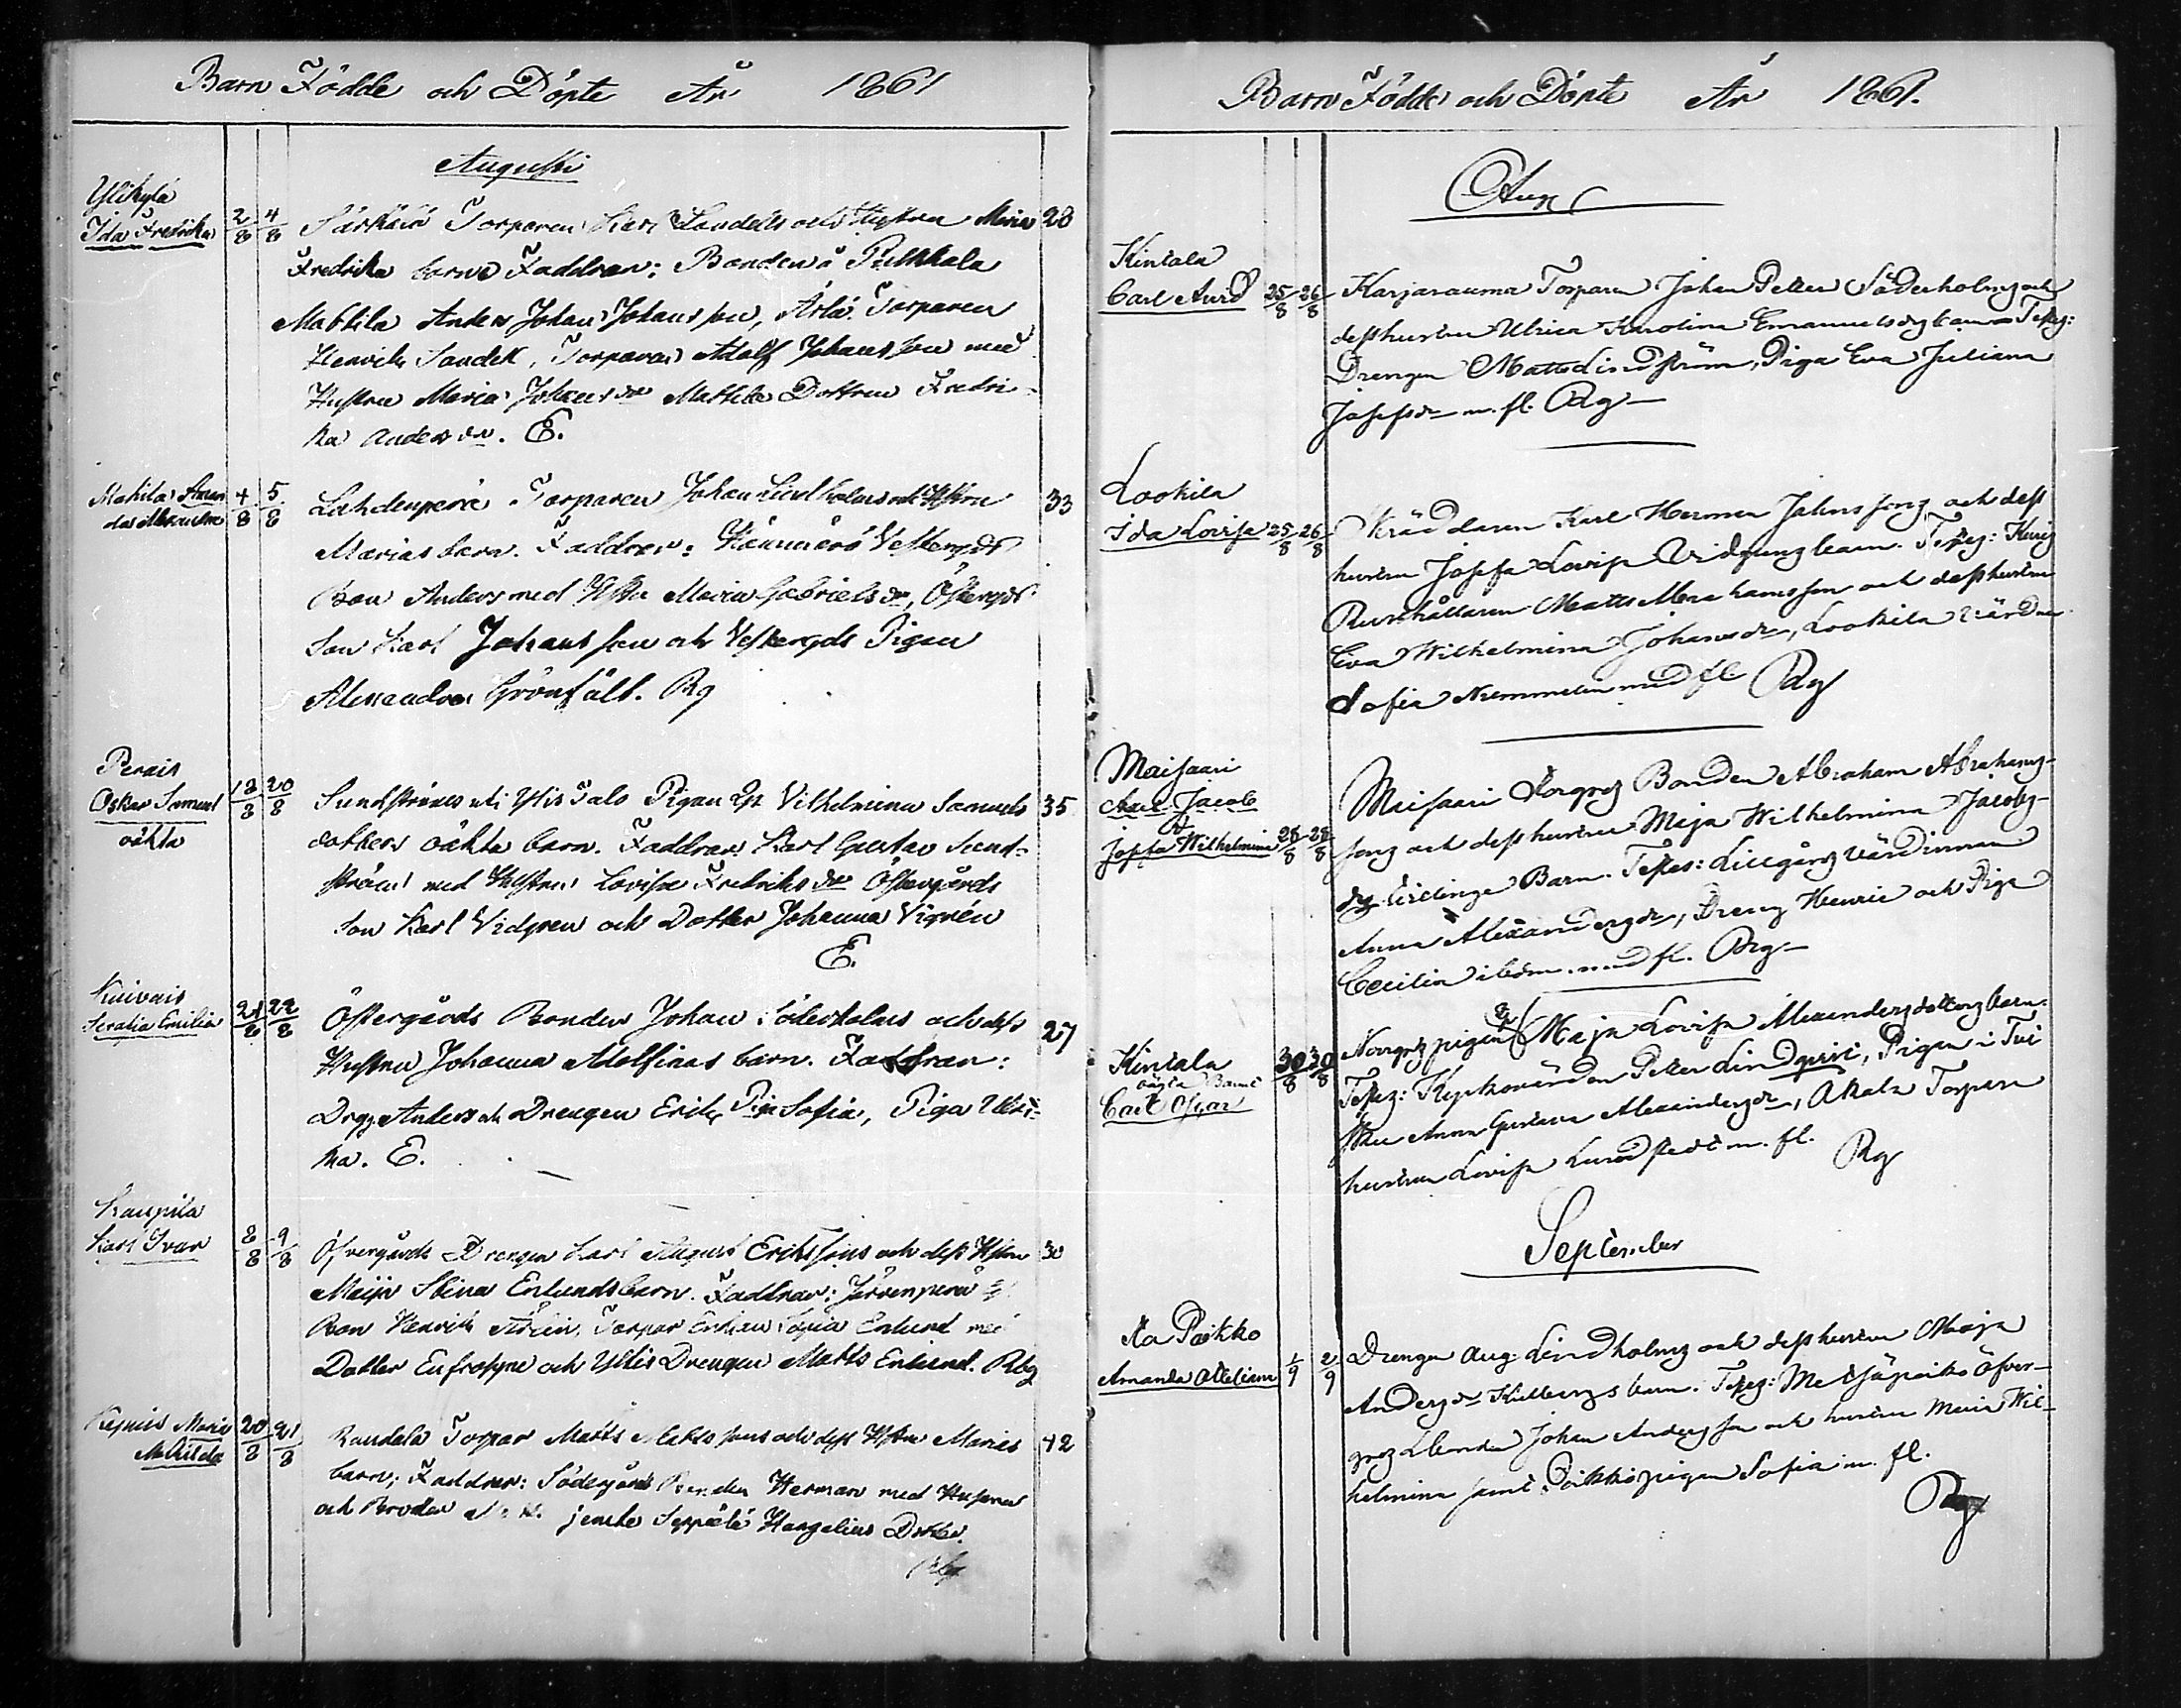 Barn Födde och Döpte År 1861
Augusti
Ylikylä
Ida Fredrika 2/8 4/8 Särkkiä Torparen Karl Sandells och Hustrun Maria 28
Fredrika barn Faddrar: Bonden å Pukkala
Mattila Anders Johan Johansson, Torparen
Henrik Sandell, Torparen Adolf Johansson med
Hustru Maria Johansdr Mattila Dottren Fredri-
ka Andersdr. E.
Mahila Aman
da Alexandra 4/8 5/8 Lahdenperä Torparen Johan Lindholms och Hstrn 33
Marias barn. Faddrar: Vestergds
Bon Anders med Hstru Maria Gabrielsdr, Östergds
Son Karl Johansson och Vestergds Pigan
Alexandra Grönfält. Rg
Perais
Oskar Samuel
oäkta 18/8 20/8 Sundströms Piga Vilhelmina Samuels 35
dotters oäkta barn. Faddrar: Karl Gustav Sund-
ström med Hustru Lovisa Fredriksdr Östergårds
Son Karl Vidgren och Dotter Johanna Vigrén
E.
Kuivais
Serafia Emilia 21/8 22/8 Östergårds Bonden Johan Söderholms och dess 27
Hustru Johanna Adolfinas barn. Faddrar:
Drgg. Anders och Drengen Erik, Pig. Sofia, Piga Ulri-
ka. E.
Kaupila
Karl Ivar 8/8 9/8 Öfvergårds Drengen Karl August Erikssons och dess Hstru 30
Maija Stina Enlunds barn. Faddrar: Järvenperä
Bon Henrik Torpar Enkan Sofia Enlund med
Dotter Eufrosyne och Ylis Drengen Matts Enlund. Rbg
Maria
Mathilda 20/8 21/8 Randala Torpar Matts Mattssons och dess Hstru Marias 42
barn; Faddrar: Södergårds Bonden Herman med Hustru
och Broder jemte Seppälä Hangelius Dotter.
Rbg
Barn Födde och Döpte År 1861.
Aug
Kintala
Carl Aurd 25/8 26/8 Karjarauma Torparen Johan Petter Söderholms och
dess hustrus Ulrica Karolina Emanuelsdrs barn Testes:
Drengen Matts Lindström, Piga Eva Juliana
Josefsdr m. fl. Rg
Lookila
Ida Lovisa 25/8 26/8 Skräddaren Karl Herman Johnssons och dess
hustrus Josefa Lovisa Vidgrens barn. Testes:
Rusthållaren Matts Abrahamsson och dess hustru
Eva Wilhelmina Johansdr, Lookila Värdn
Sofia Nummelin med fl. Rg
Maisaari
Aug. Jacob
&
Josefa Wilhelmina 28/8 28/8 Maisaari Norrgrds Bonden Abraham Abrahams-
sons och dess hustrus Maja Wilhelmina Jacobs-
drs tvillinge Barn. Testes: Lillgårds värdinnan
Anna Alexandersdr, Dreng Henric och Piga
Cecilia ibdm. med fl. Rg
Kintala
oägta Barnet
Carl Oscar 30/8 30/8 Norrgrds pigan Maja Lovisa Alexandersdotters barn.
Testes: Kyrkovärden Petter Lindqvist, Pigan i
Anna Gustava Alexandersdr, Akala Torpare
hustrun Lovisa Lundstedt m. fl. Rg
September
Aa Poikko
Amanda Otteliana 1/9 2/9 Drengen Aug. Lindholms och dess hustrus Maja
Andersdr Kullbergs barn. Testes: Metsäpoikko Öfver-
grds Bonden Johan Andersson och hustrun Maria Wil-
helmina samt Poikko pigan Sofia m. fl.
Rg